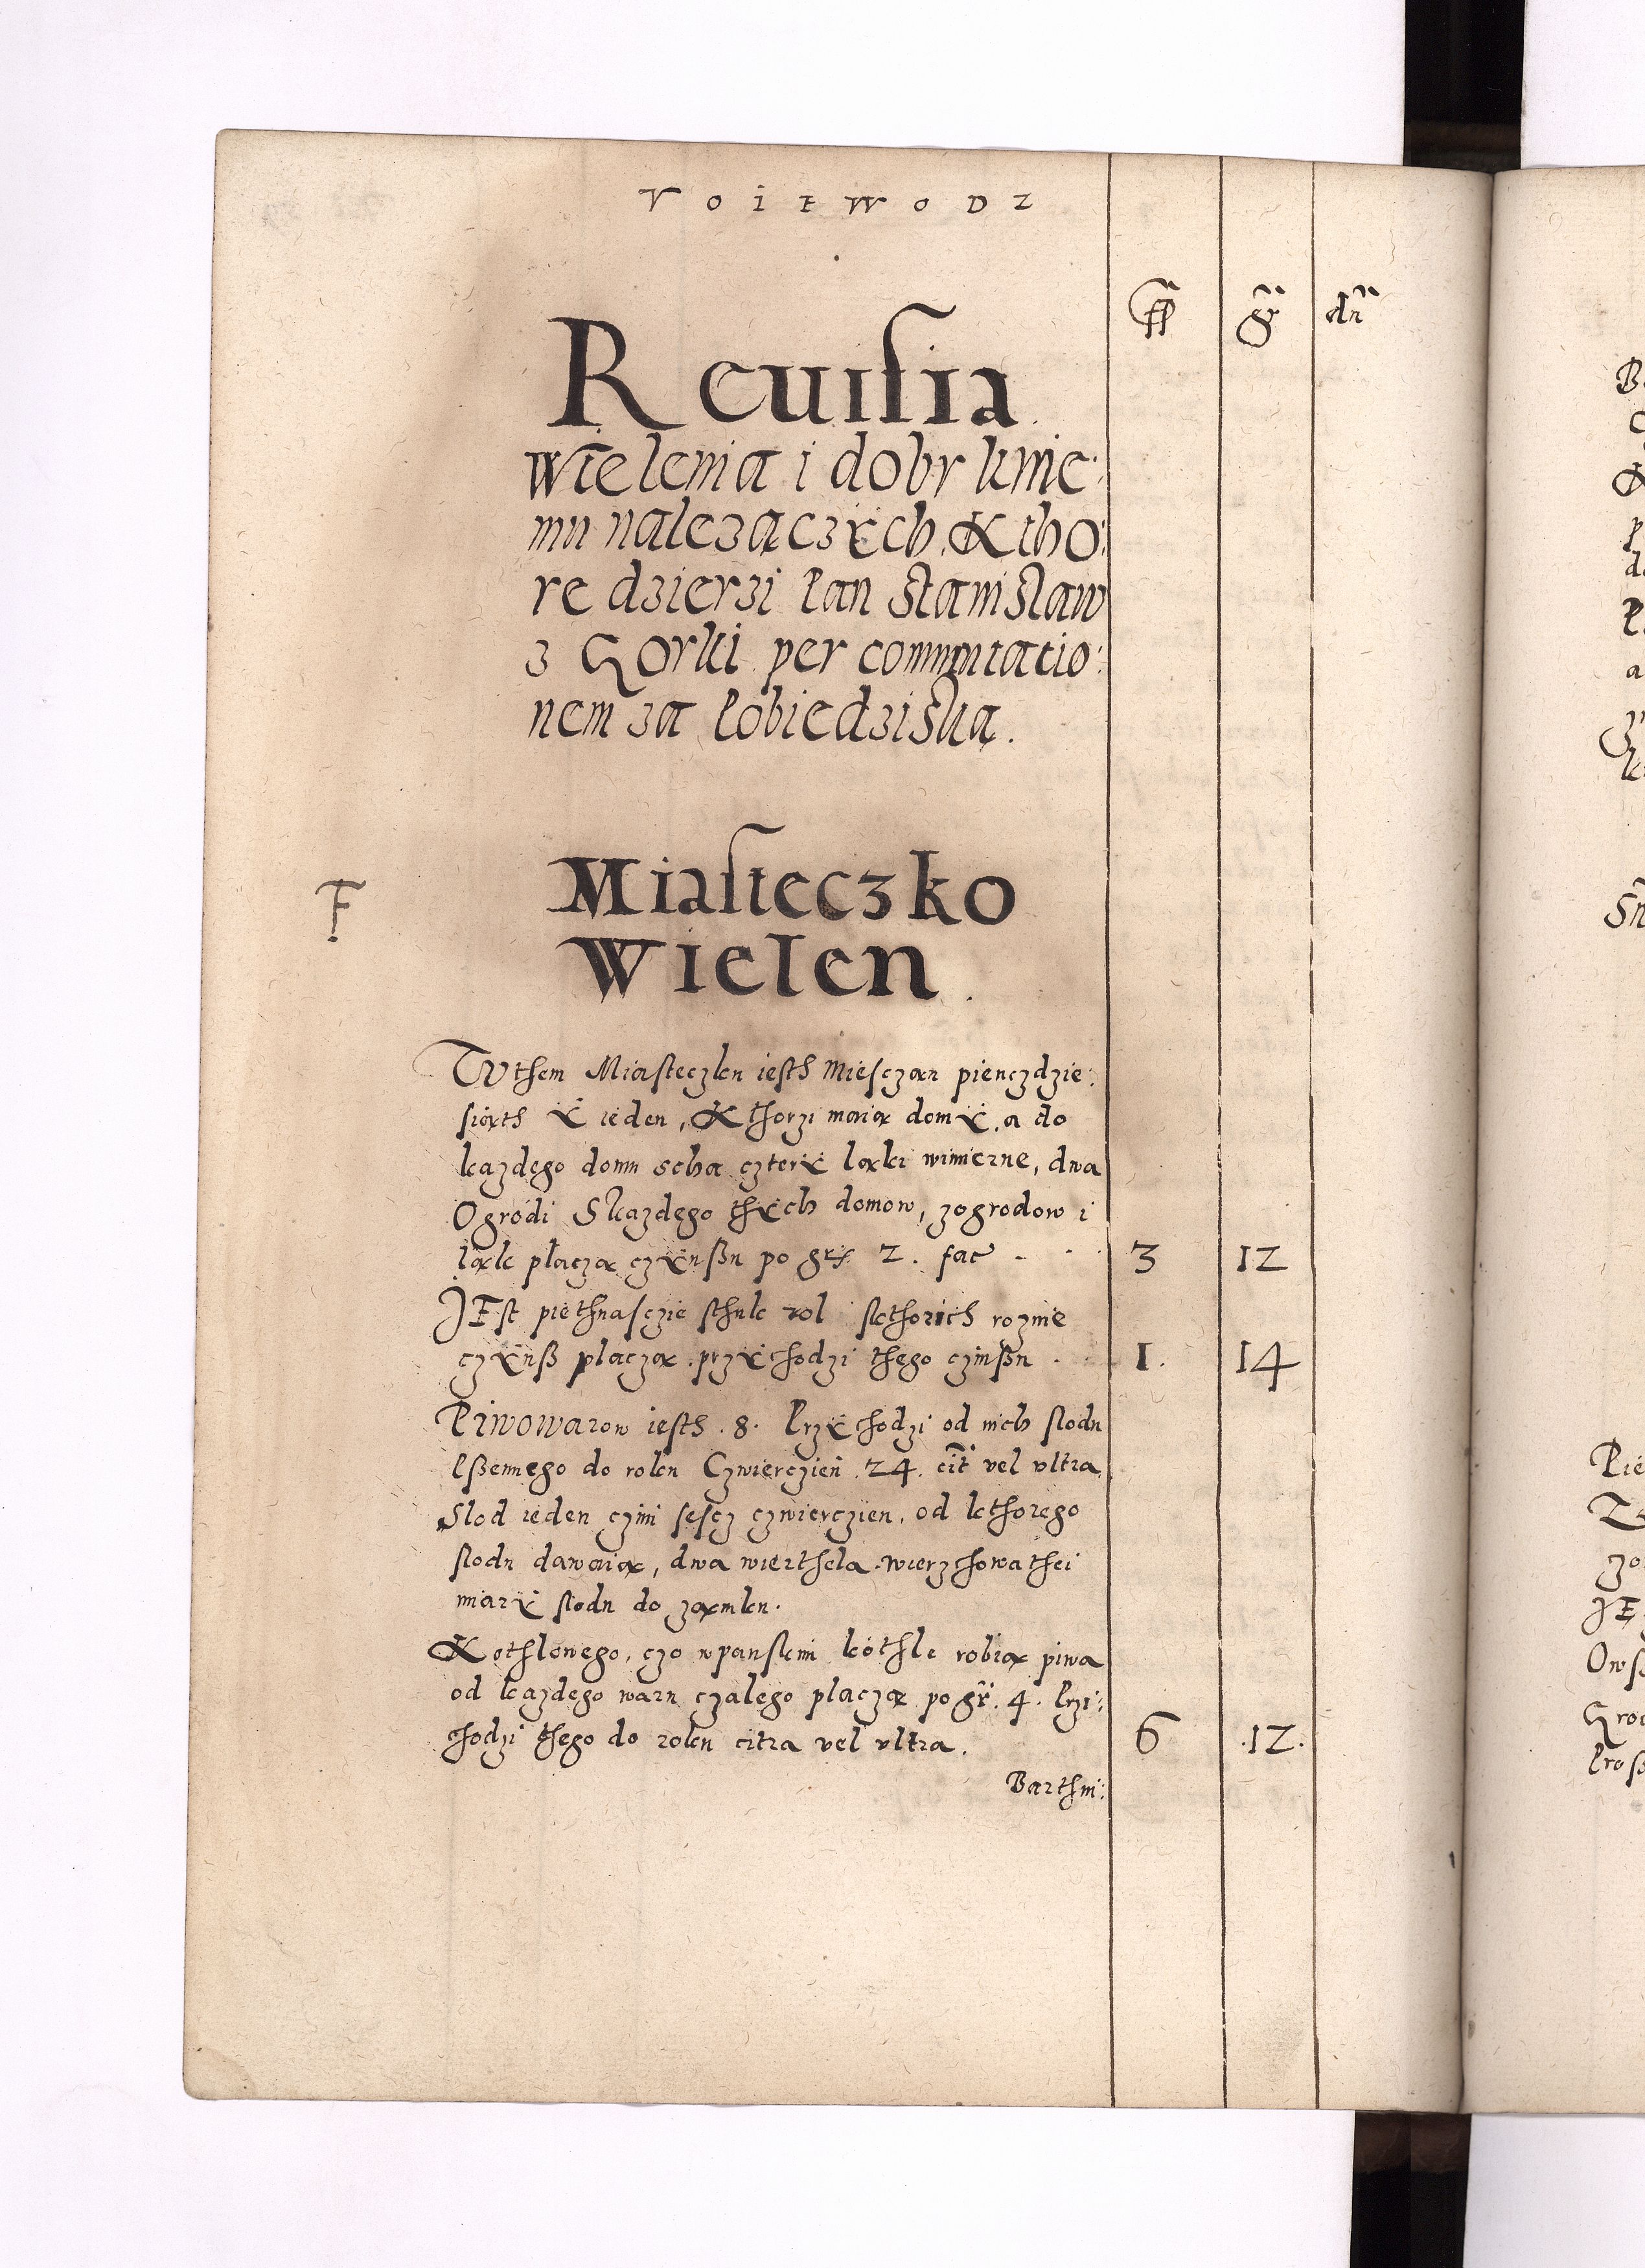 VOIEWODZ
fl gr dn
Reuisia
Wielenia i dobr k niemu
mu nalezączÿch, Ktho:
re dzierzi Pan Stanisław
z Gorki per commutatio:
nem za Pobiedziska.
F
Miasteczko
Wielen.
TVthem Miasteczku iesth Miesczan pienczdzie:
siąth ÿ ieden, Kthorzi maią domÿ, a do
każdego domu scha czterÿ łąki wimierne, dwa
Ogrodi Skazdego thÿch domow, zogrodow i
łąk płaczą czÿnßu po grs 2. fac 3 12
IEst piethnasczie sthuk rol skthorich rozmie
czÿnß płaczą. przÿchodzi thego czinßu 1. 14
Piwowarow iesth .8. Przÿchodzi od nich słodu
Pßennego do roku Czwierczien .24. cit vel vltra
Slod ieden czini sescz czwierczien, od kthorego
słodu dawaią, dwa wierthela wierzchowathei
miarÿ słodu do zamku.
Kothlowego, czo wpanskim kothle robią piwa
od każdego waru czalego płaczą po gr. 4. Przi:
chodzi thego do roku citra vel vltra. 6 .12.
Barthni: